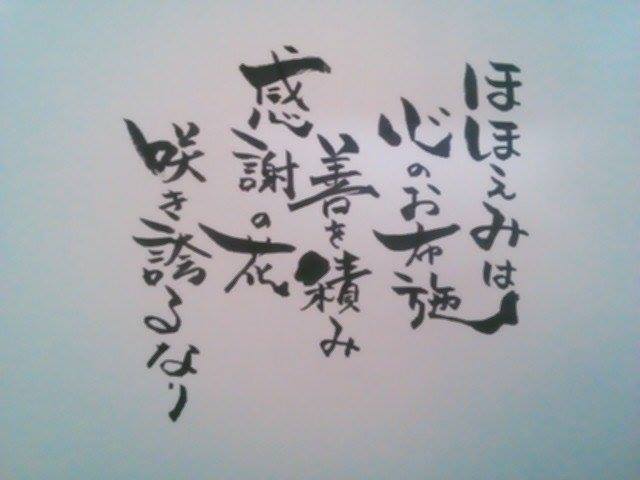 ほほえみは
心のお布施
善を積み
感謝の花
咲き誇るなり